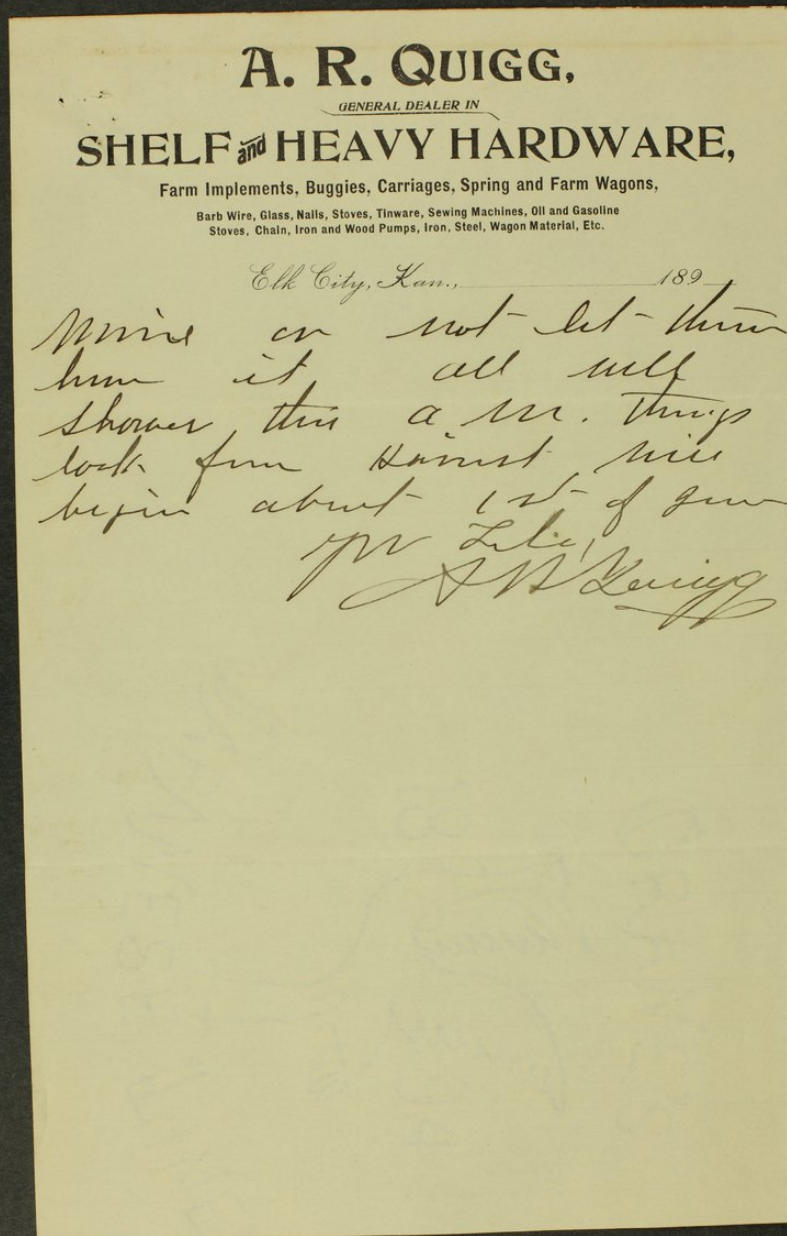 A. R. QUIGG,
GENERAL DEALER IN
SHELF and HEAVY HARDWARE,
Farm Implements, Buggies, Carriages, Spring and Farm Wagons,
Barb Wire, Glass, Nails, Stoves, Tinware, Sewing Machines, Oil and Gasoline
Stoves, Chain, Iron and Wood Pumps, Iron, Steel, Wagon Material, Etc.
Elk City, Kan., 189
or not let them
have it all well
shower this a m. things
look fine Harvest will
begin about 1st of June
A R Quigg